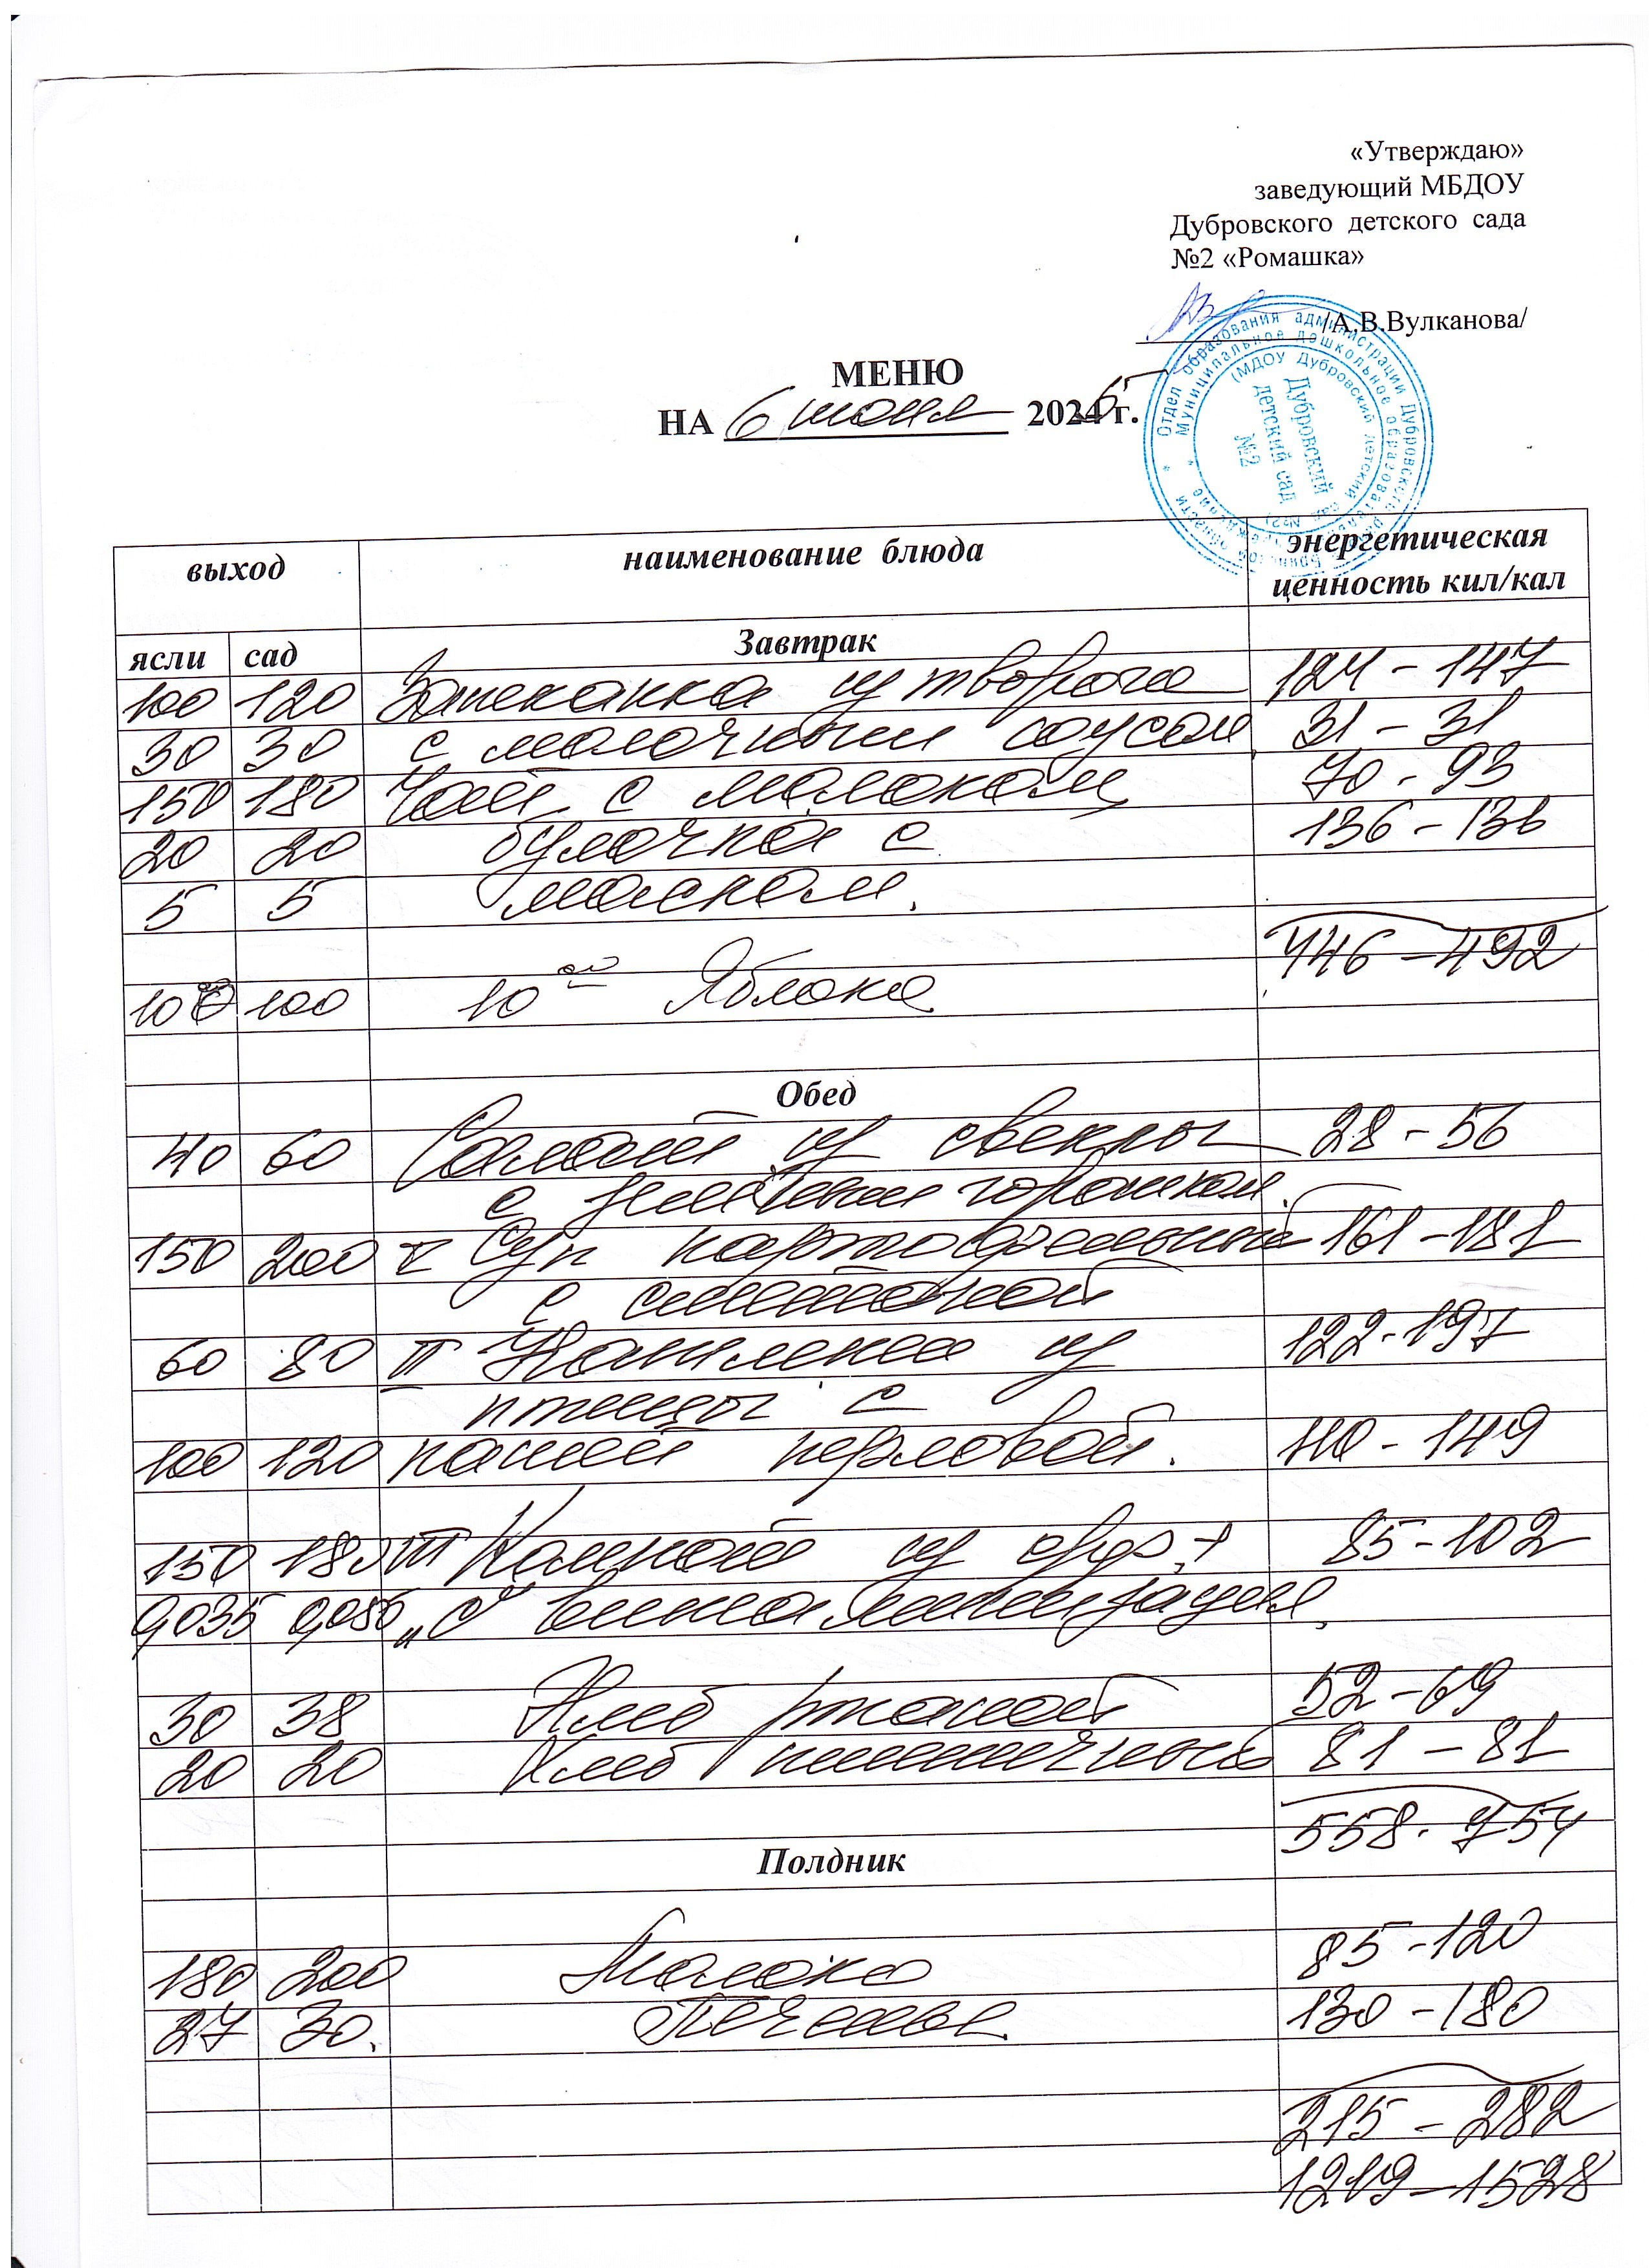 «Утверждаю»
заведующий МБДОУ
Дубровского детского сада
№2 «Ромашка»
/А.В.Вулканова/
Отдел образования администрации Дубровского
Муниципальное дошкольное
(МДОУ Дубровский детский сад №2)
Дубровский
детский сад
№2
МЕНЮ
НА 6 июня 2025 г.
выход наименование блюда энергетическая
ценность кил/кал
ясли сад Завтрак
100 120 Запеканка из творога 124-147
30 30 с молочным соусом 31-31
150 180 Чай с молоком 70-93
20 20 булочка с 136-136
5 5 маслом.
446-492
100 100 10 00 Яблоко
Обед
40 60 Салат из свеклы 28-56
с зелёным горошком.
150 200 I Суп картофельный 161-181
с сметаной
60 80 II Котлета из 122-197
птицы с
100 120 кашей перловой. 110-149
150 180 III Компот из с/ф + 85-102
0,035 0,050 „С" витаминизация
30 38 Хлеб ржаной 52-69
20 20 Хлеб пшеничный 81-81
558-754
Полдник
180 200 Молоко 85-120
27 30. Печенье 130-180
215-282
1219-1528